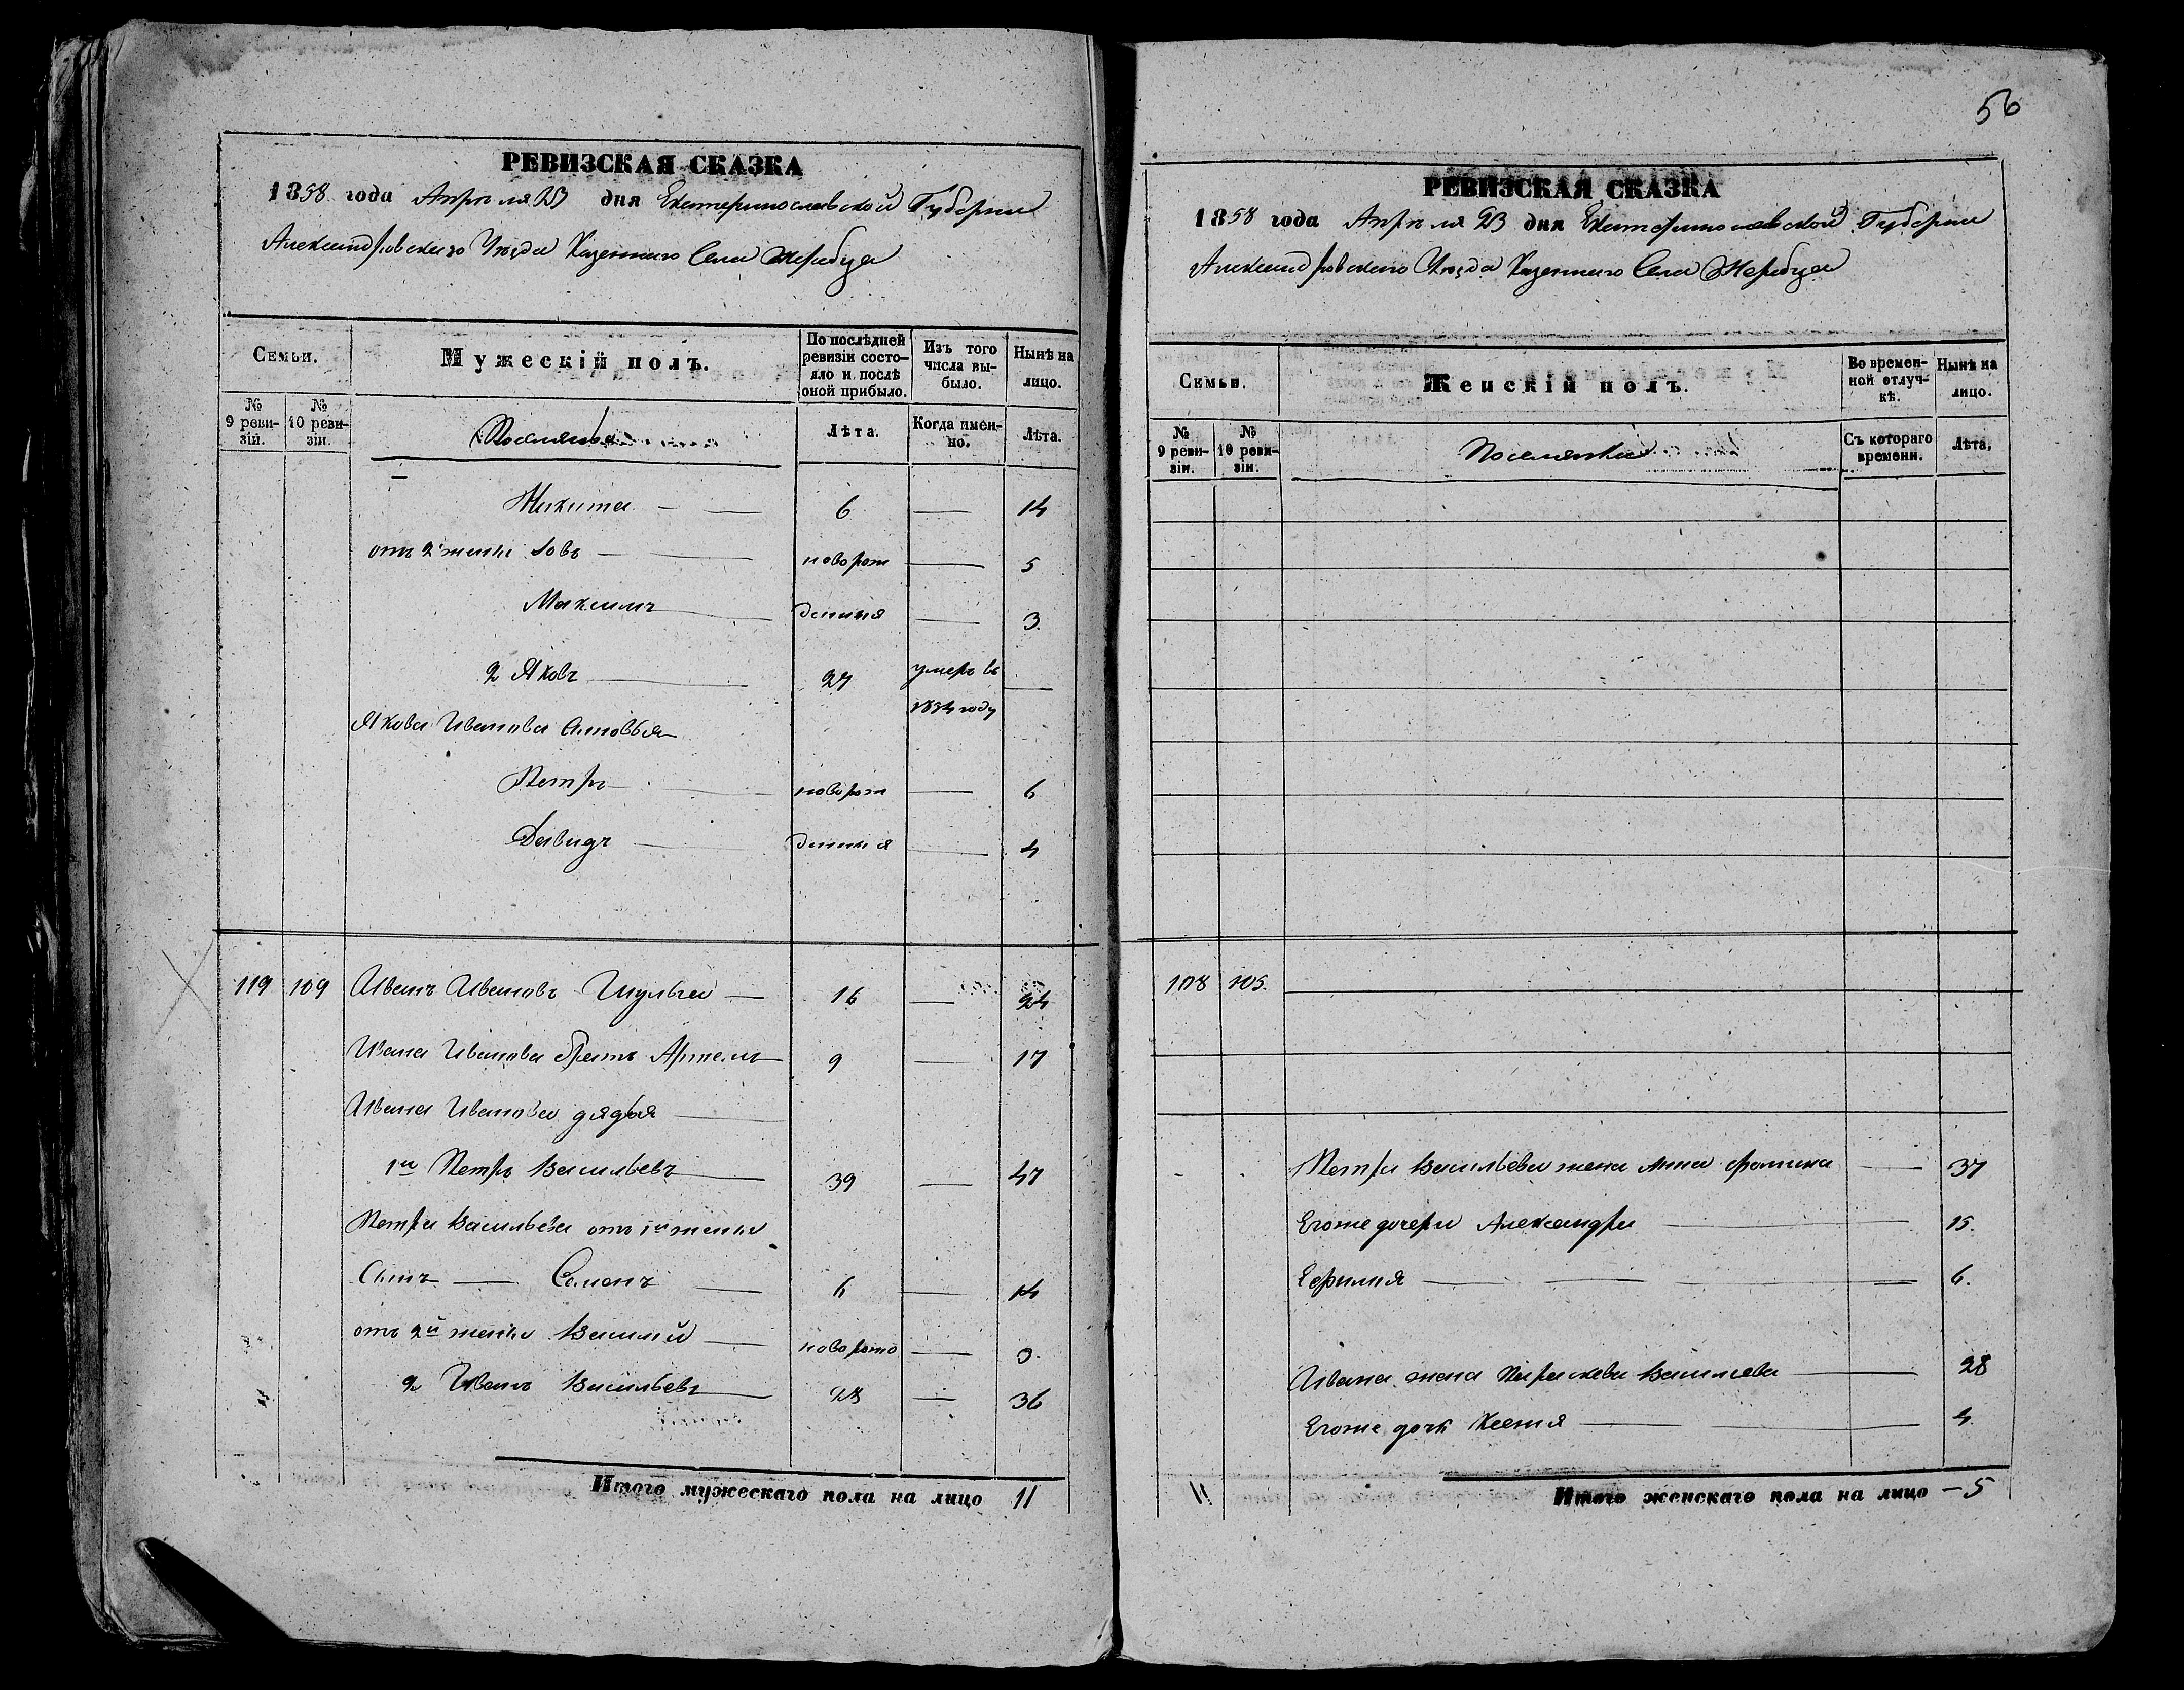 56
РЕВИЗСКАЯ СКАЗКА
1858 года Апрѣля 23 дня Екатеринославской Губерніи
Александровскаго Уѣзда Казеннаго Села Жеребца
Семьи.
Мужескій полъ.
По послѣдней ревизіи состояло и послѣ оной прибыло.
Изъ того числа выбыло.
Нынѣ на лицо.
№ 9 ревизіи.
№ 10 ревизіи.
Поселяне
Лѣта.
Когда именно.
Лѣта.
Никита — — 6 — 14
отъ 2й жены Іовъ — новорож — 5
Максимъ — денныя — 3.
2 Яковъ — 27 умеръ въ 1854 году —
Якова Иванова сыновья
Петръ — новорож — 6
Давидъ — денныя — 4
119 109 Иванъ Ивановъ Шульга — 16 — 24
Ивана Иванова братъ Артемъ 9 — 17
Ивана Иванова дядья —
1й Петръ Васильевъ — 39 — 47
Петра Васильева отъ 1й жены
Сынъ — Семенъ — 6 — 14
отъ 2й жены Василий — новорож — 3.
2 Иванъ Васильевъ — 28 — 36
Итого мужескаго пола на лицо 11
РЕВИЗСКАЯ СКАЗКА
1858 года Апрѣля 23 дня Екатеринославской Губерніи
Александровскаго Уѣзда Казеннаго Села Жеребца
Семьи.
Женскій полъ.
Во временной отлучкѣ.
Нынѣ на лицо.
№ 9 ревизіи.
№ 10 ревизіи.
Поселянки
Съ котораго времени.
Лѣта.
108 105.
Петра Васильева жена Анна Фомина — 37
Егоже дочери Александра — 15.
Ефимия — — — = 6.
Ивана жена Параскева Васильева — 28
Егоже дочь Ксения — — 4.
Итого женскаго пола на лицо — 5